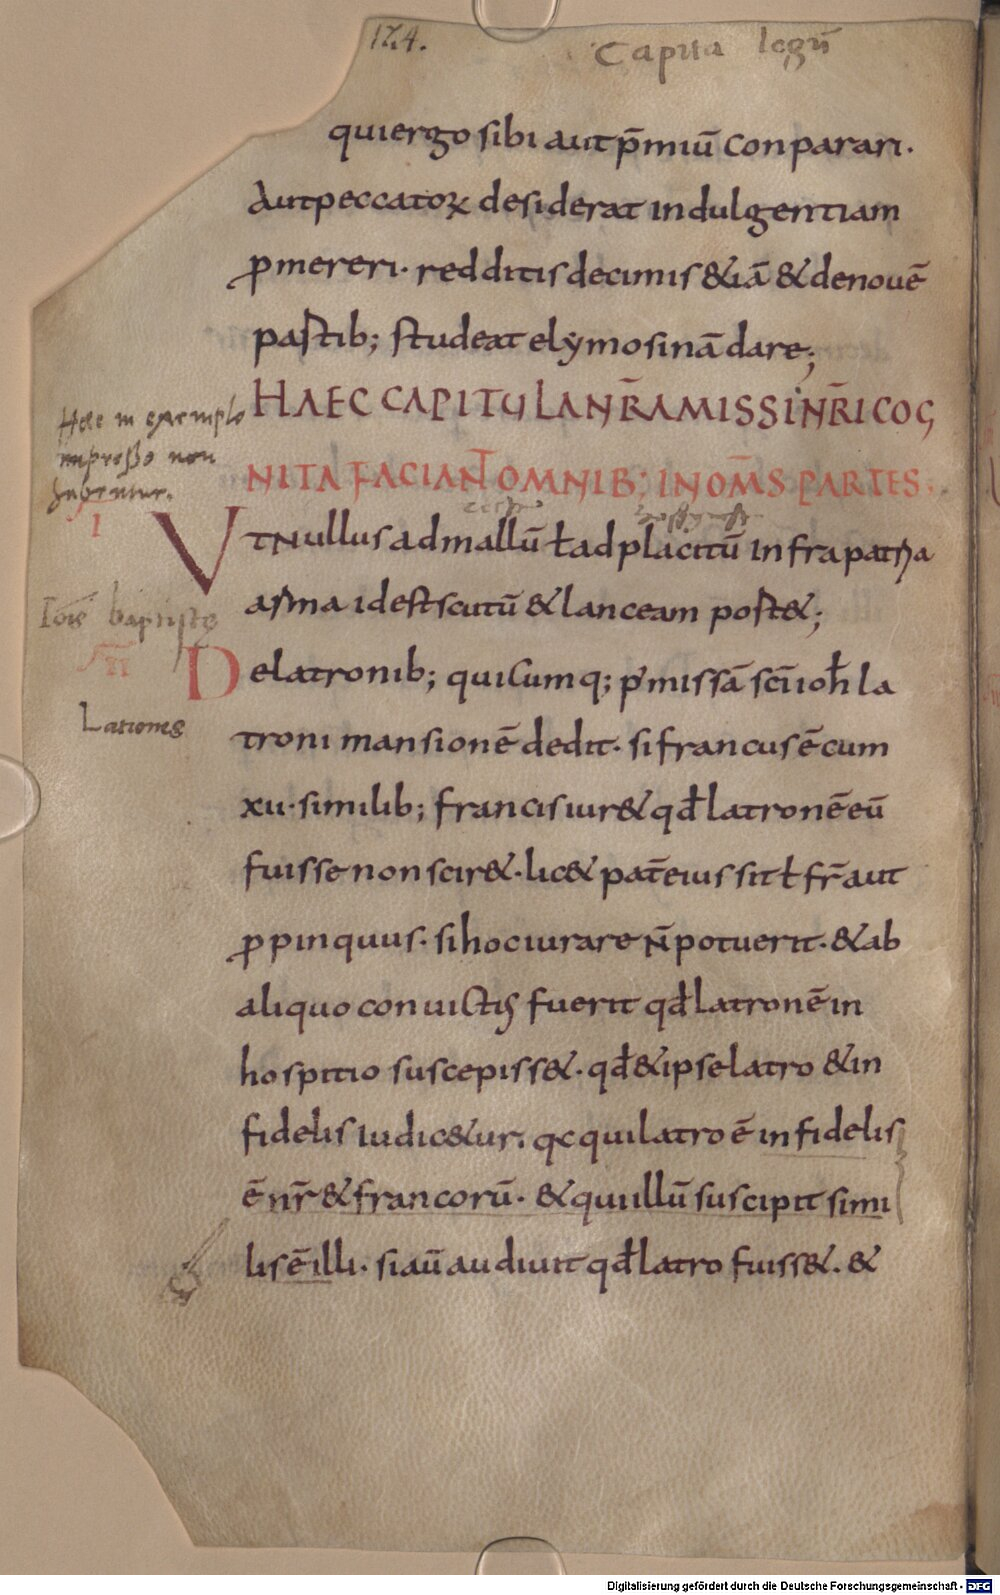 124.
Capita legū
qui ergo sibi aut p̄miū conparari.
Aut peccatoꝝ desiderat indulgentiam
ꝓmereri. redditis decimis &iā & denouē
partib; studeat elymosinā dare;
HAEC CAPITULA NR̄A MISSI NR̄I COG
NITA FACIANT OMNIB; IN OM̄S PARTES.
Hæc in exemplo
impresso non
habentur.
I
UT nullus ad mallū ł ad placitū infra patria
arma id est scutū & lanceam port&;
Iois baptiste
II
De latronib; quicumq; p̄ missā sc̄i ioh̄ la
Latrones
troni mansionē dedit. si francus ē cum
xii. similib; francis iur& qd̄ latronē eū
fuisse non scir&. lic& pat̄ eius sit ł fr̄ aut
ꝓpinquus. si hoc iurare n̄ potuerit. & ab
aliquo conuictus fuerit qd̄ latronē in
hospitio suscepiss&. qd̄ & ipse latro & in
fidelis iudic&ur. qc qui latro ē infidelis
ē nr̄ & francorū. & qui illū suscipit simi
lis ē illi. si aū audiuit qd̄ latro fuiss&. &
Digitalisierung gefördert durch die Deutsche Forschungsgemeinschaft - DFG